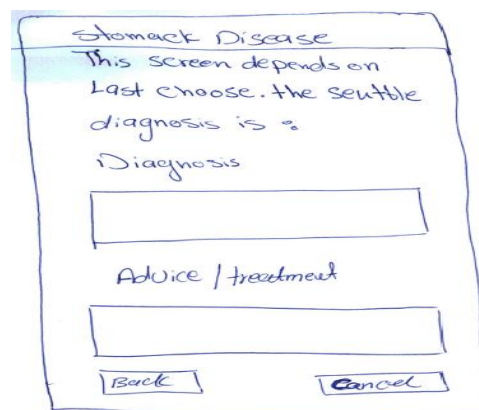 Stomack Disease
This screen depends on
Last choose. the seuttle
diagnosis is :
Diagnosis
Advice / treetment
Back
Cancel